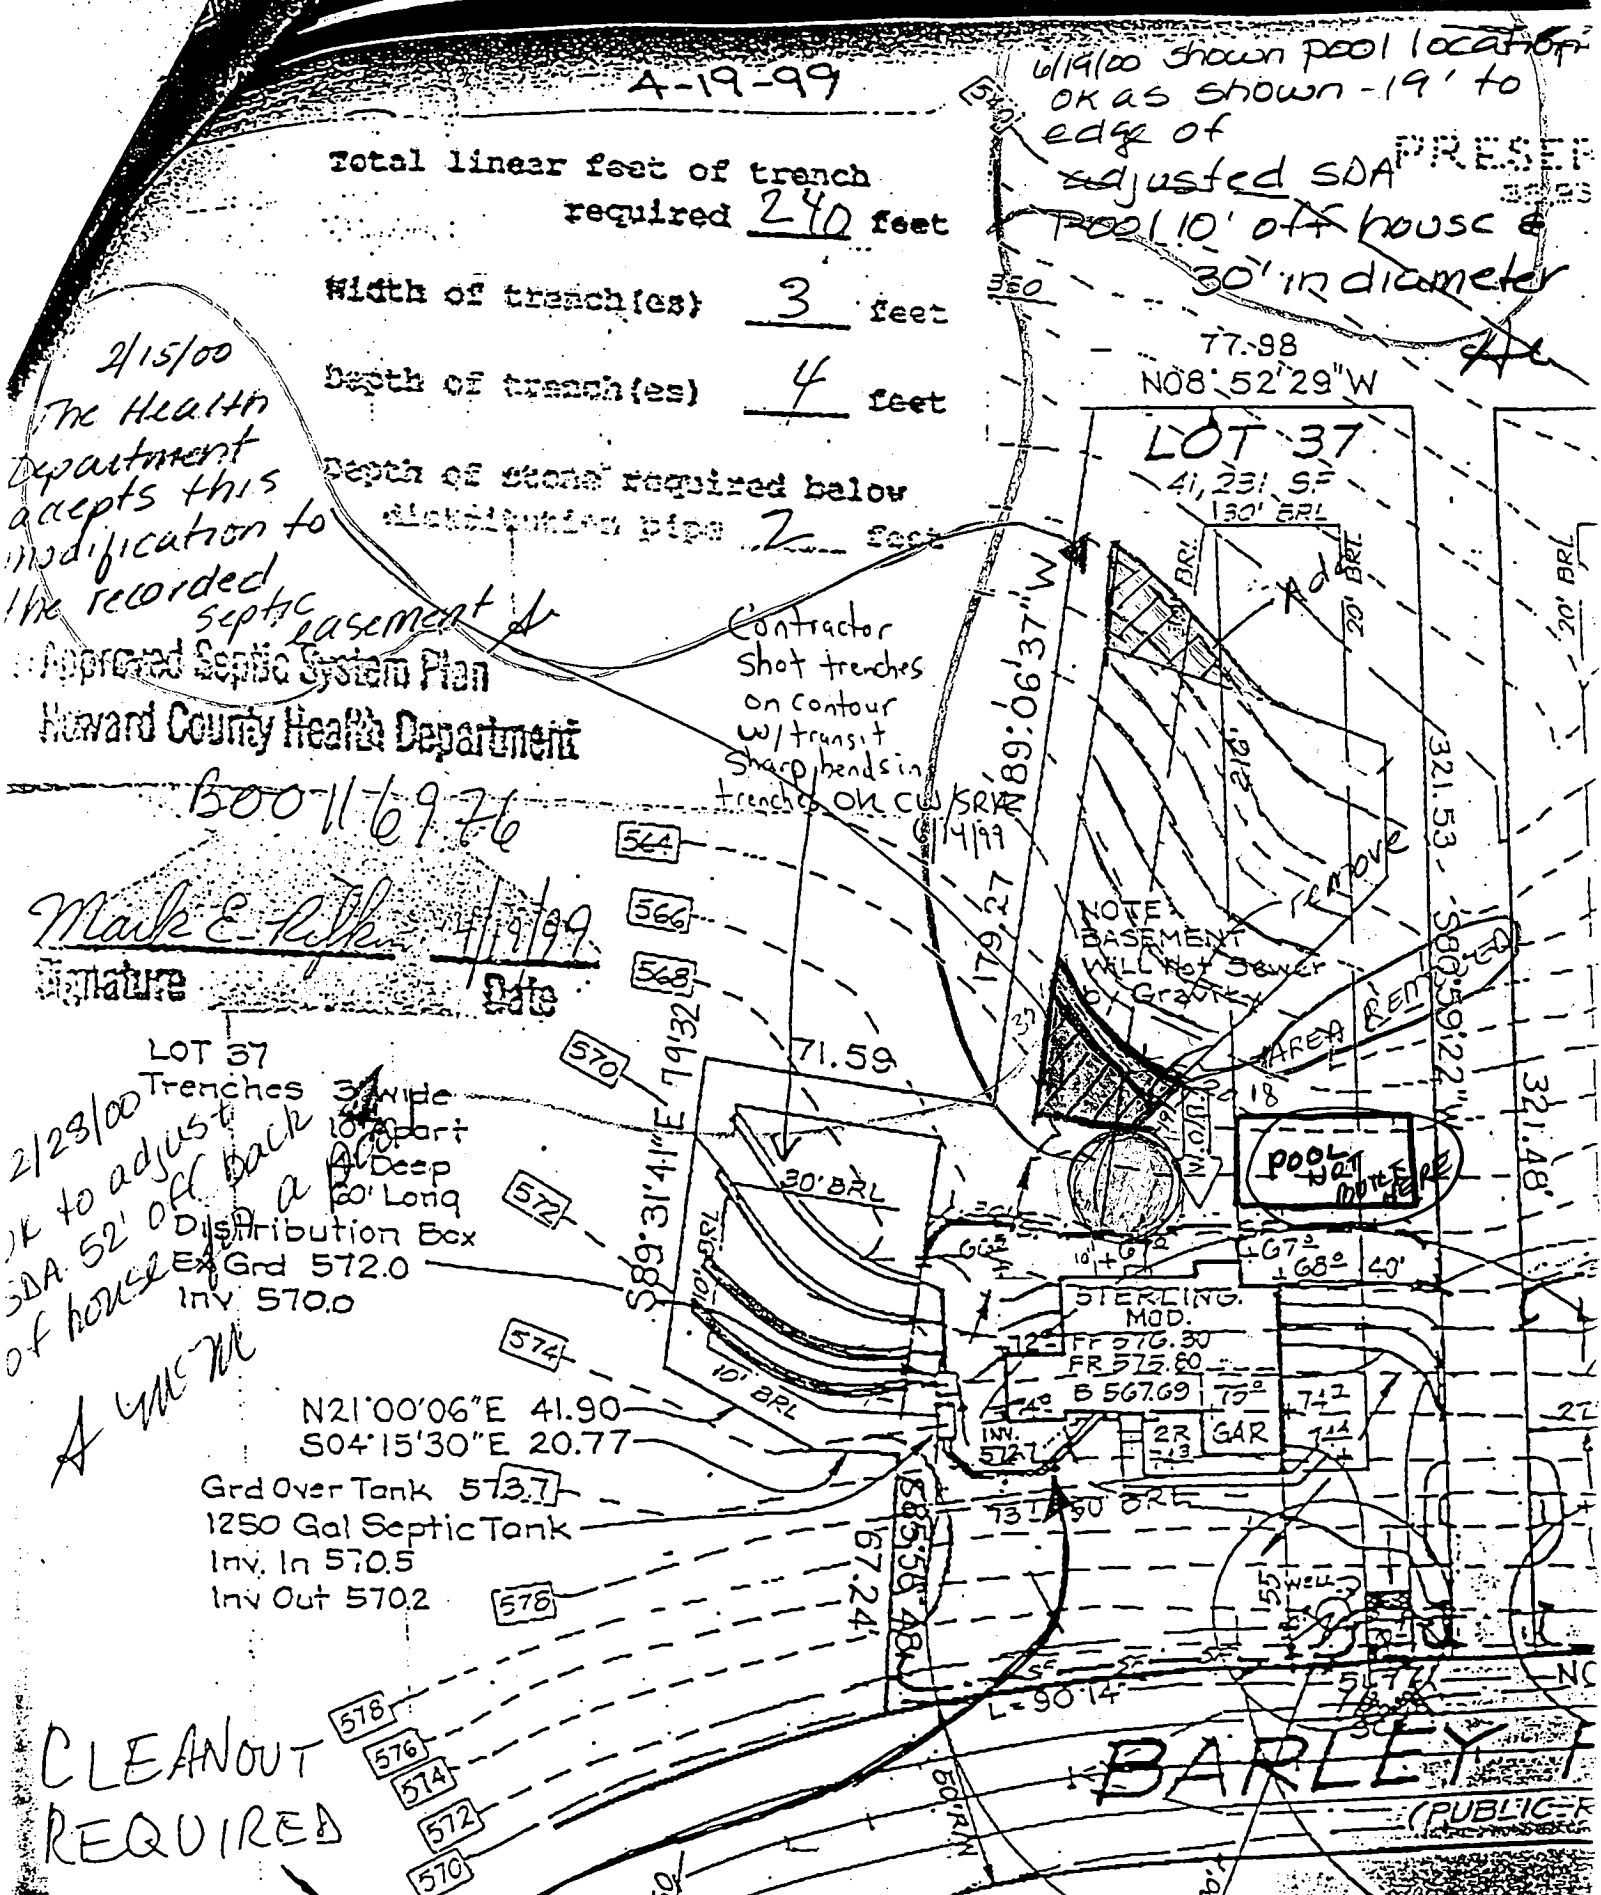 4-19-99
6/19/00 Shown pool location
OK as shown - 19' to
edge of
adjusted SDA
Pool 10' off house &
30' in diameter
PRESER
Total linear feet of trench
required 240 feet
Width of trench(es) 3 feet
Depth of trench(es) 4 feet
Depth of stone required below
distribution pipe 2 feet
2/15/00
The Health
Department
accepts this
modification to
the recorded
septic
easement
Approved Septic System Plan
Howard County Health Department
B00116976
4/19/99
Signature Date
Contractor
Shot trenches
on contour
w/transit
Sharp bends in
trenches OK CW/SRK
540
560
77.98
N08°52'29"W
LOT 37
41,231 SF
30' BRL
BRL
20' BRL
20' BRL
Add
212'
N89°06'37"W
179.27
321.53
S80°59'22"W
321.48'
remove
NOTE:
BASEMENT
Will Not Sewer
by Gravity
AREA
18
W/O
POOL
NOT
HERE
564
566
568
570
572
574
71.59
S89°31'41"E 79.32
30' BRL
10' BRL
10' BRL
LOT 37
Trenches 3' wide
10' Apart
4' Deep
60' Long
Distribution Box
Ex Grd 572.0
Inv 570.0
2/28/00
OK to adjust
SDA 52' off back
of house
a pool
N21°00'06"E 41.90
S04°15'30"E 20.77
Grd Over Tank 573.7
1250 Gal Septic Tank
Inv. In 570.5
Inv Out 570.2
578
STERLING
MOD.
FF 576.30
FR 575.80
B 567.69
GAR
2R
INV.
572.7
40'
67.24'
55
Well
SF
SF
SF
L=90.14'
50' R/W
578
576
574
572
570
CLEANOUT
REQUIRED
BARLEY
(PUBLIC